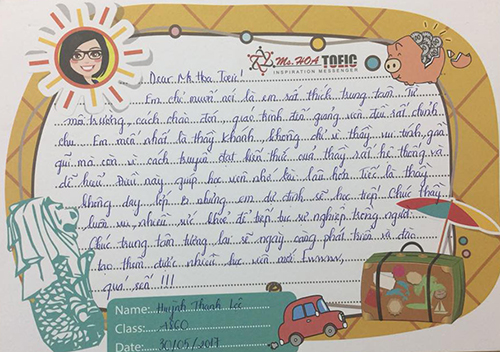 Ms. HOA TOEIC
INSPIRATION MESSENGER
Dear Ms Hoa Toeic!
Em chỉ muốn nói là em rất thích trung tâm. Từ
môi trường, cách chào đón, giáo trình đến giảng viên đều rất chỉnh
chu. Em mến nhất là thầy Khánh, không chỉ vì thầy vui tính, gần
gũi mà còn vì cách truyền đạt kiến thức của thầy rất hệ thống và
dễ hiểu. Điều này giúp học viên nhớ lâu hơn. Tiếc là thầy
không dạy lớp B nhưng em dự định sẽ học tiếp! Chúc thầy
luôn vui, nhiều sức khỏe để tiếp tục sự nghiệp trồng người.
Chúc trung tâm tương lai sẽ ngày càng phát triển và đào
tạo thêm được nhiều học viên mới.
quá sến !!!
Name: Huỳnh Thanh
Class: A860
Date: 30/05/2017